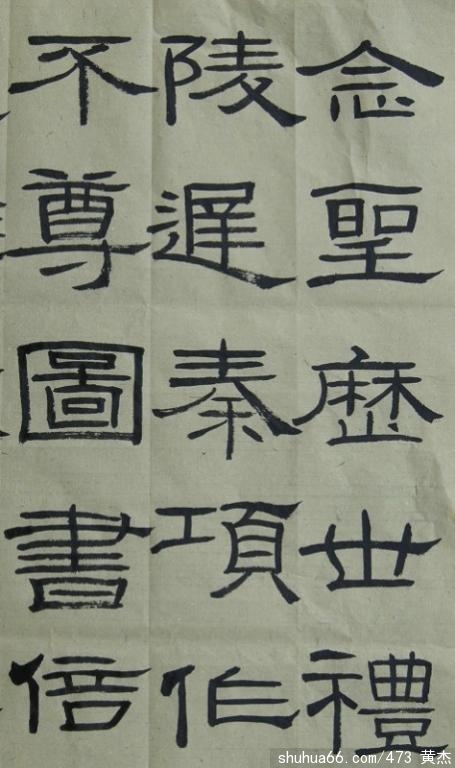 念聖歷世禮
陵遲秦項作
不尊圖書倍
shuhua66.com/473 黄杰